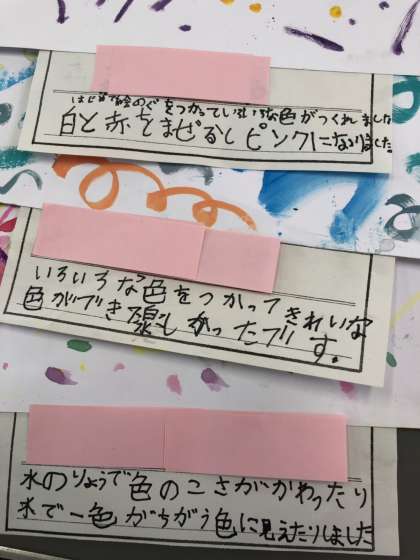 はじめて絵のぐをつかっていろいろな色がつくれました
白と赤とまぜるしピンクになりました
いろいろな色をつかってきれいな
色ができ楽しかったです。
水のりょうで色のこさがかわったり
水で一色がちがう色に見えたりしました